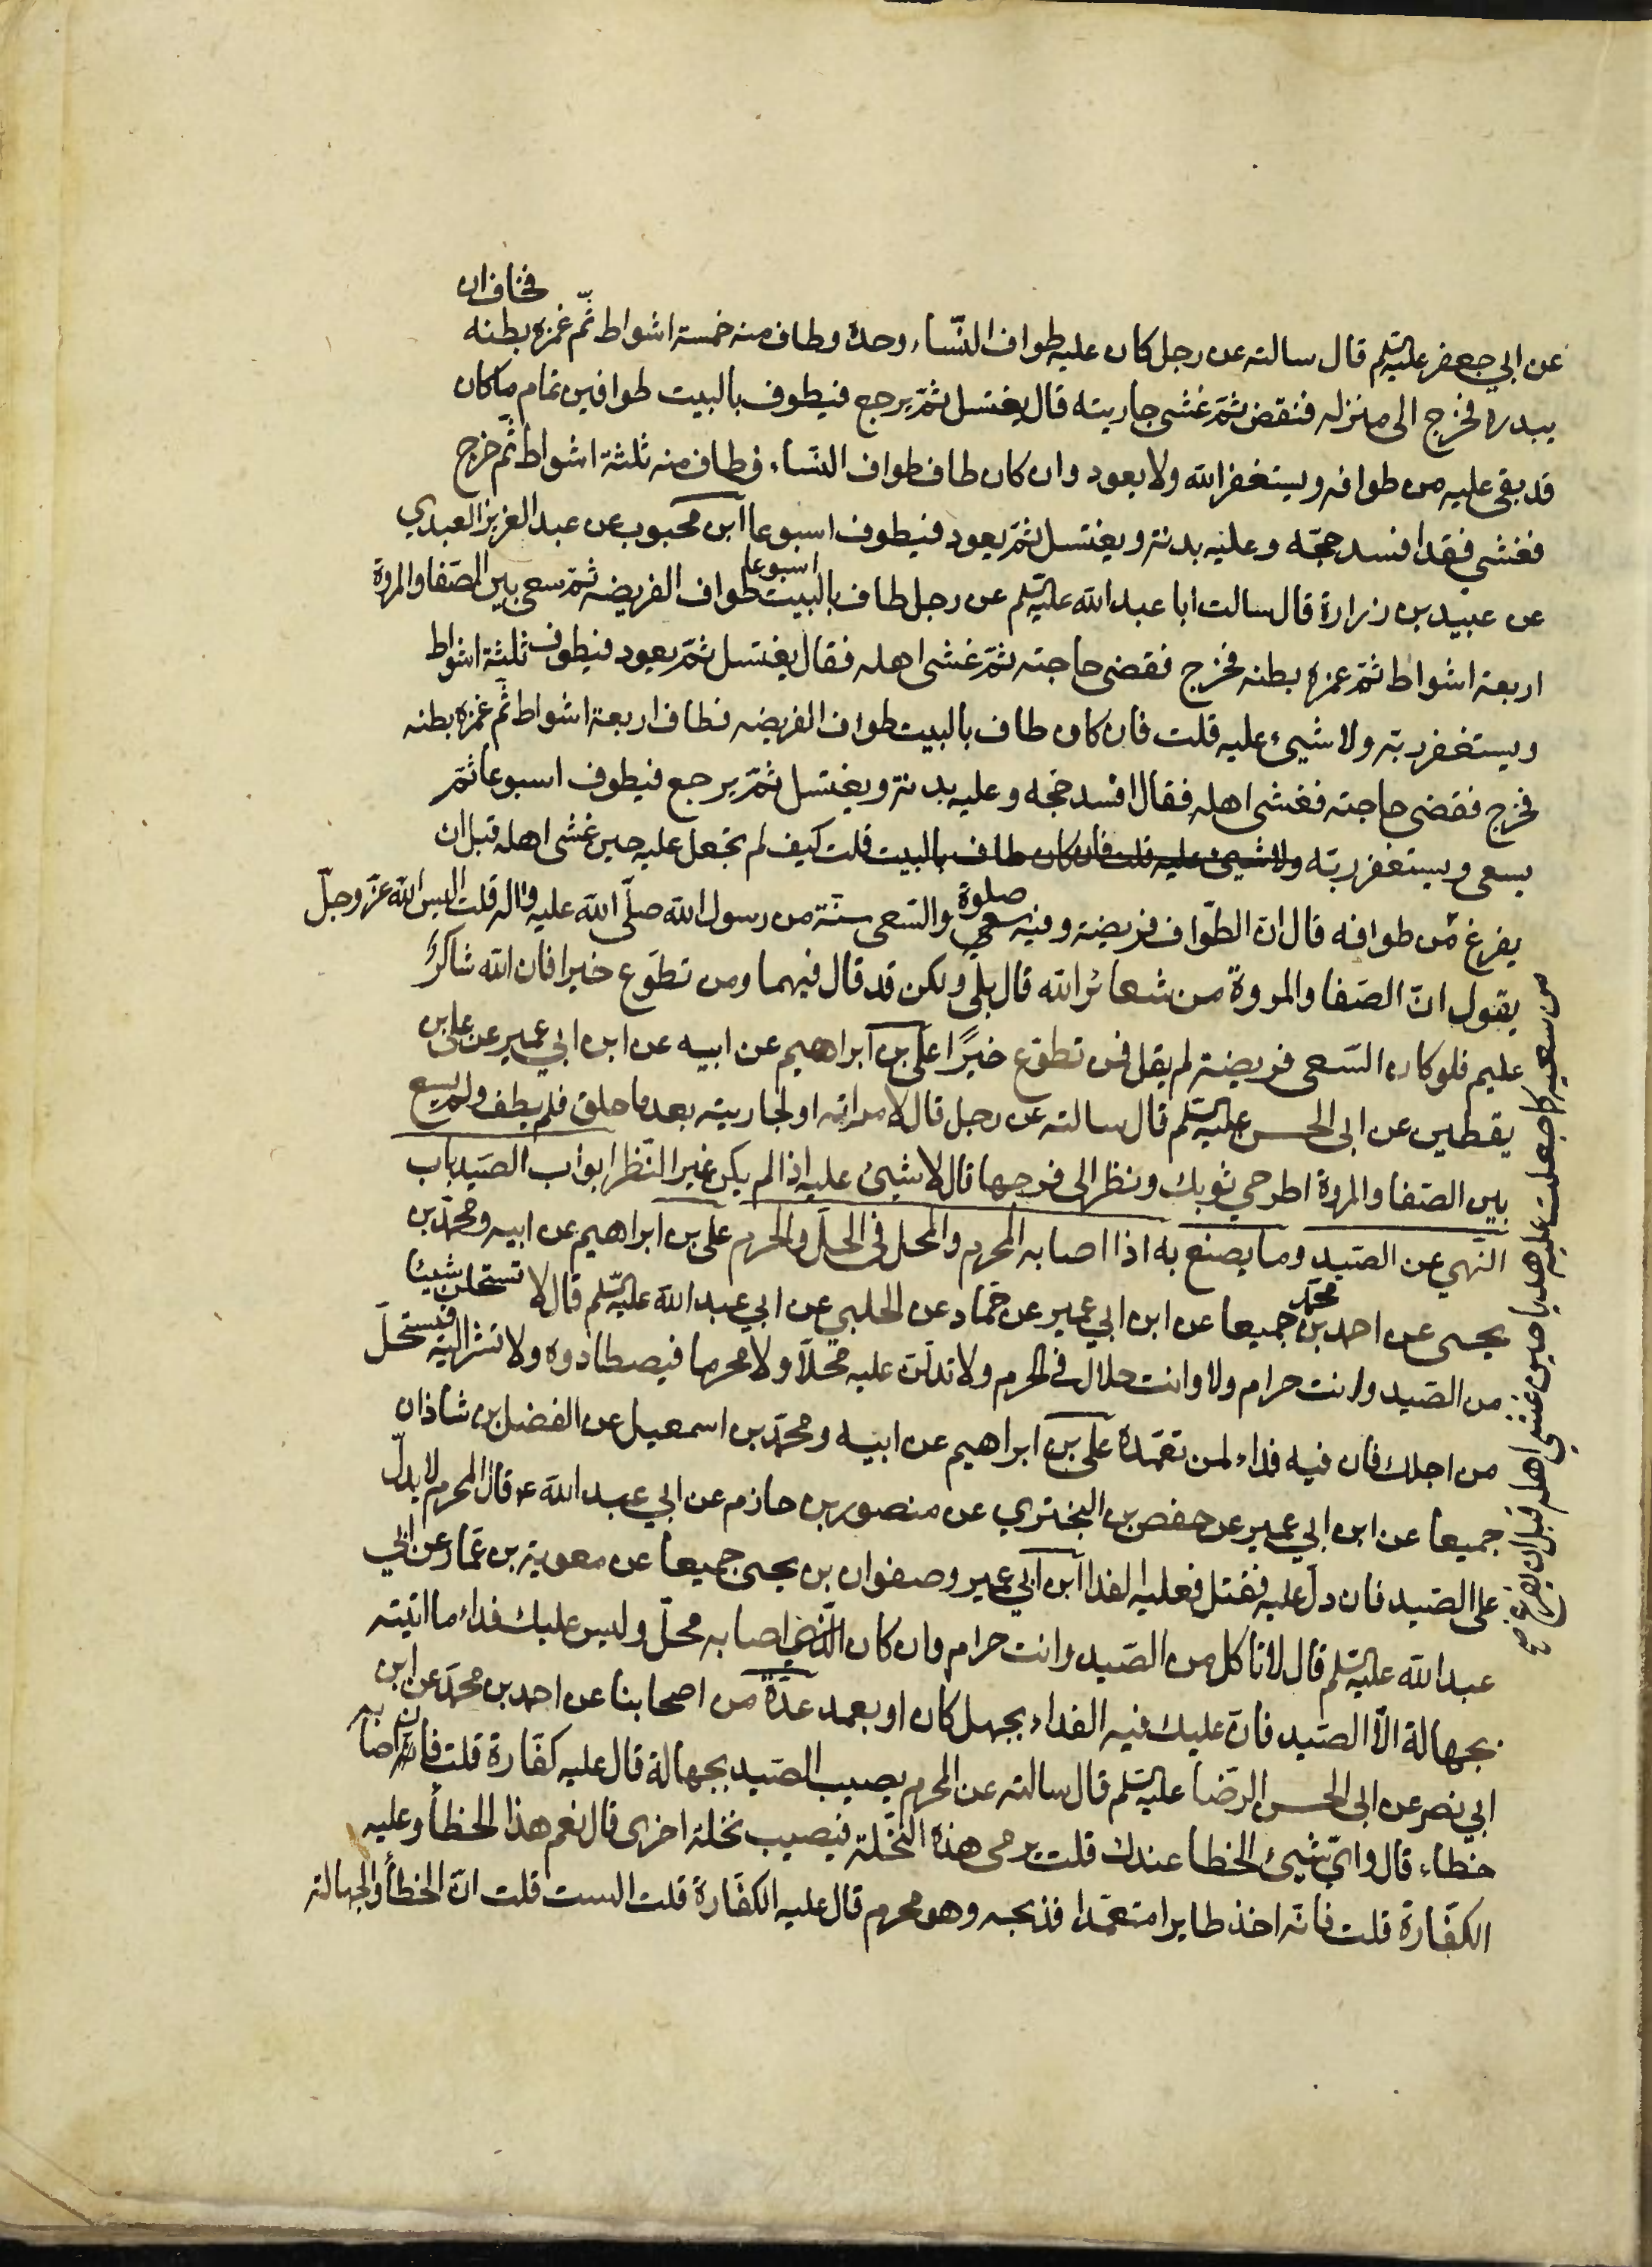 فخاف ان
عن ابي جعفر عليه السلم قال سالته عن رجل كان عليه طواف النّساء وحده وطاف منه خمسة اشواط ثمّ غمزه بطنه
يبدره فخرج الى منزله فنقض ثمّ غشى جاريته قال يغتسل ثمّ يرجع فيطوف بالبيت طوافين تمام ما كان
قد بقى عليه من طوافه ويستغفر الله ولا يعود وان كان طاف طواف النّساء فطاف منه ثلثة اشواط ثمّ خرج
فغشي فقد افسد حجّه وعليه بدنة ويغتسل ثمّ يعود فيطوف اسبوعا ابن محبوب عن عبد العزيز العبدي
عن عبيد بن زرارة قال سالت ابا عبد الله عليه السلم عن رجل طاف بالبيت اسبوعا طواف الفريضه ثمّ سعى بين الصّفا والمروة
اربعة اشواط ثمّ غمزه بطنه فخرج فقضى حاجته ثمّ غشى اهله فقال يغتسل ثمّ يعود فيطوف ثلثة اشواط
ويستغفر ربّه ولا شيئ عليه قلت فان كان طاف بالبيت طواف الفريضه فطاف اربعة اشواط ثمّ غمزه بطنه
فخرج فقضى حاجته فغشى اهله فقال افسد حجه وعليه بدنة ويغتسل ثمّ يرجع فيطوف اسبوعا ثمّ
يسعى ويستغفر ربّه ولا شيئ عليه قلت فان كان طاف بالبيت قلت كيف لم تجعل عليه حين غشى اهله قبل ان
يفرغ من طوافه قال انّ الطّواف فريضة وفيه سعي صلوة والسّعى سنّة من رسول الله صلّى الله عليه واله قلت اليس الله عزّ وجلّ
يقول انّ الصّفا والمروة من شعائر الله قال بلى ولكن قد قال فيهما ومن تطوّع خيرا فان الله شاكرٌ
عليم فلو كان السّعى فريضة لم يقل فمن تطوّع خيرًا علىّ بن ابراهيم عن ابيه عن ابن ابي عمير عن على بن
يقطين عن ابى الحسن عليه السلم قال سالته عن رجل قال لامراته او لجاريته بعد ما حلق فلم يطف ولم يسع
بين الصّفا والمروة اطرحي ثوبك ونظر الى فرجها قال لا شيئ عليه اذا لم يكن غير النّظر ابواب الصّيد باب
النّهي عن الصّيد وما يصنع به اذا اصابه المحرم والمحل في الحلّ والحرم على بن ابراهيم عن ابيه ومحمّد بن
يحيى عن احمد بن محمّد جميعا عن ابن ابي عمير عن حمّاد عن الحلبي عن ابي عبد الله عليه السلم قال لا تستحلن شيئا
من الصّيد وانت حرام ولا وانت حلال في الحرم ولا تدلّنّ عليه محلّا ولا محرما فيصطادوه ولا تشر اليه فيستحلّ
من اجلك فان فيه فداء لمن تعمّده على بن ابراهيم عن ابيه ومحمّد بن اسمعيل عن الفضل بن شاذان
جميعا عن ابن ابي عمير عن حفص بن البختري عن منصور بن حازم عن ابي عبد الله ع قال المحرم لا يدلّ
على الصّيد فان دلّ عليه فقتل فعليه الفدا ابن ابي عمير وصفوان بن يحيى جميعا عن معوية بن عمّار عن ابي
عبد الله عليه السلم قال لا تاكل من الصّيد وانت حرام وان كان الّذي اصابه محلّ وليس عليك فداء ما اتيته
بجهالة الّا الصّيد فانّ عليك فيه الفداء بجهل كان او بعمد عدّة من اصحابنا عن احمد بن محمّد عن ابن
ابي نصر عن ابى الحسن الرّضا عليه السلم قال سالته عن المحرم يصيب الصّيد بجهالة قال عليه كفّارة قلت فان اصابه
خطاء قال وايّ شيئ الخطا عندك قلت يرمى هذه النّخلة فيصيب نخلة اخرى قال نعم هذا الخطأ وعليه
الكفّارة قلت فانّه اخذ طايرا متعمّدا فذبحه وهو محرم قال عليه الكفّارة قلت الست قلت انّ الخطأ والجهالة
من سعيه كما جعلت عليه هديا حين غشى اهله قبل ان يفرغ صح